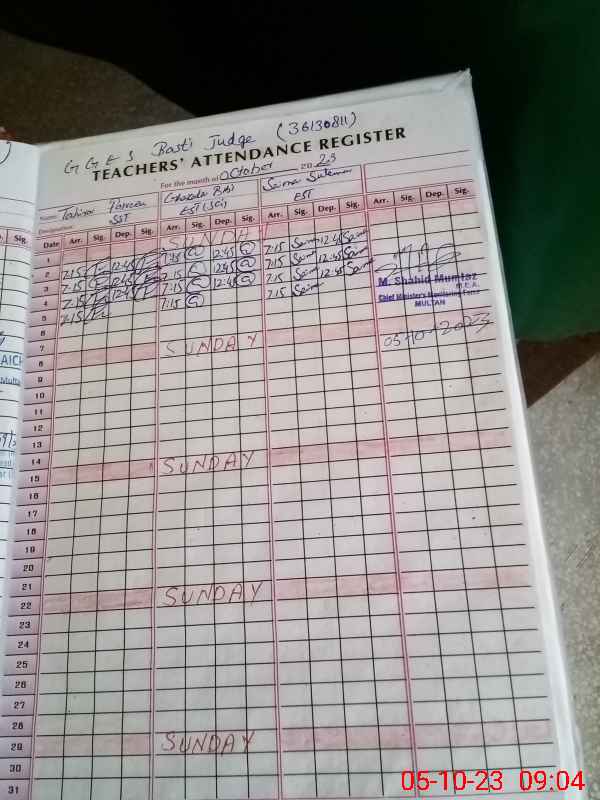 G G E S Basti Judge (36130811)
TEACHERS' ATTENDANCE REGISTER
For the month of October 2023
Name: Tahira Parveen
Designation: SST EST (Sci) EST
Date Arr. Sig. Dep. Sig. Arr. Sig. Dep. Sig. Arr. Sig. Dep. Sig. Arr. Sig. Dep. Sig.
1 SUNDAY
2 7:15 12:45 7:15 12:45 7:15 12:45
3 7:15 12:45 7:15 12:45 7:15 12:45
4 7:15 12:45 7:15 12:45 7:15 12:45
5 7:15 7:15 7:15
M. Shahid Mumtaz
M.E.A.
Chief Minister's Monitoring Force
MULTAN
05-10-2023
6
7
8 SUNDAY
9
10
11
12
13
14
15 SUNDAY
16
17
18
19
20
21
22 SUNDAY
23
24
25
26
27
28
29 SUNDAY
30
31
05-10-23 09:04